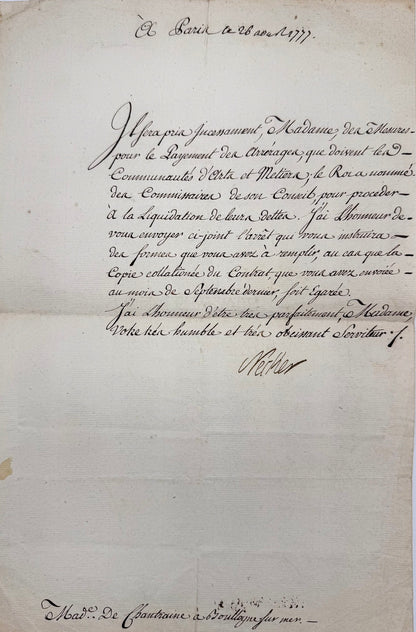 À Paris le 26 aoust 1777.
Il sera pris incessament, Madame, des Mesures
pour le Payement des Arrérages, que doivent les
Communautés d'Arts et Métiers; le Roi a nommé
des Commissaires de son Conseil, pour proceder
à la Liquidation de leurs dettes. J'ai L'honneur de
vous envoyer ci-joint l'arrêt qui vous instruira
des formes que vous avez à remplir, au cas que la
Copie collationée du Contrat, que vous avez envoiée
au mois de Septembre dernier, soit Egarée.
J'ai L'honneur d'être très parfaitement, Madame,
Votre très humble et très obeissant Serviteur ./.
Necker
Mad.e De Chantraine à Boullogne sur mer. —